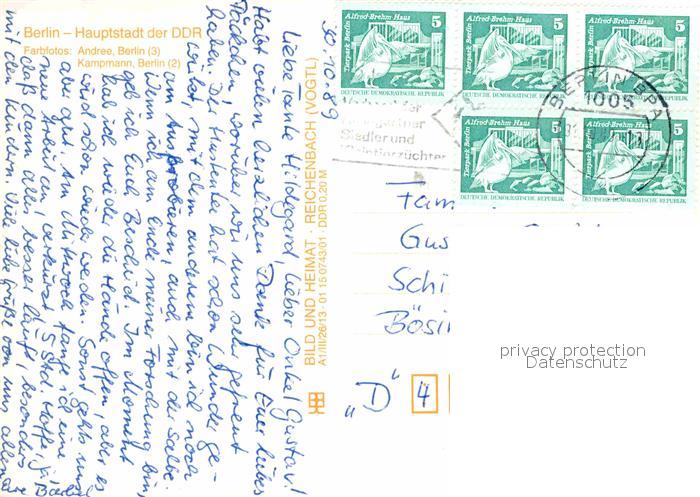 Berlin – Hauptstadt der DDR
Farbfotos: Andree, Berlin (3)
Kampmann, Berlin (2)
30.10.89
Liebe Tante Hildegard, lieber Onkel Gustav!
Habt vielen herzlichen Dank für Euer liebes
Päckchen, worüber wir uns sehr gefreut
haben. Die hat schon Wunder ge-
wirkt, mit dem anderen bin ich noch
am Ausprobieren, auch mit der Salbe.
Wenn ich am Ende meiner Forschung bin,
geb ich Euch Bescheid. Im Moment
hab ich wieder die Hände offen, aber es
wird schon wieder werden. Sonst geht's uns
aber gut. Am Mittwoch fange ich eine
neue Arbeit an, verkürzt 5 Std. Hoffe,
daß dann alles besser läuft, besonders
mit den Kindern. Viele liebe Grüße von uns allen
BILD UND HEIMAT · REICHENBACH (VOGTL)
A1/III/26/13 · 01 15 0743/01 · DDR 0,20 M
Alfred-Brehm-Haus 5
Tierpark Berlin
DEUTSCHE DEMOKRATISCHE REPUBLIK
Alfred-Brehm-Haus 5
Tierpark Berlin
DEUTSCHE DEMOKRATISCHE REPUBLIK
Alfred-Brehm-Haus 5
Tierpark Berlin
DEUTSCHE DEMOKRATISCHE REPUBLIK
Tierpark Berlin
5
DEUTSCHE DEMOKRATISCHE REPUBLIK
Alfred-Brehm-Haus 5
Tierpark Berlin
DEUTSCHE DEMOKRATISCHE REPUBLIK
Siedler und
Kleintierzüchter
BERLIN BPA
1005
Fam
Gus
Schi
Bösi
„D“
4
privacy protection
Datenschutz